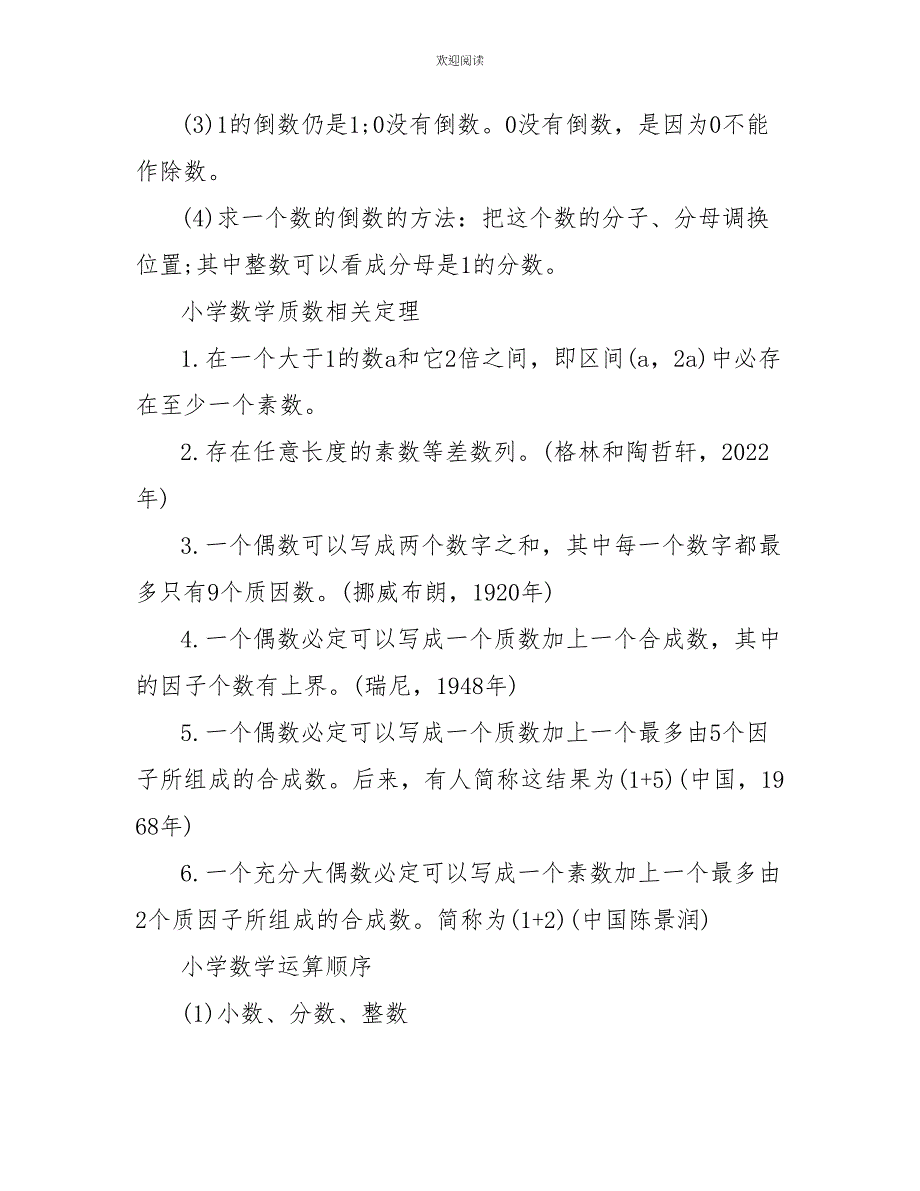 欢迎阅读
(3)1的倒数仍是1;0没有倒数。0没有倒数，是因为0不能
作除数。
(4)求一个数的倒数的方法：把这个数的分子、分母调换
位置;其中整数可以看成分母是1的分数。
小学数学质数相关定理
1.在一个大于1的数a和它2倍之间，即区间(a，2a)中必存
在至少一个素数。
2.存在任意长度的素数等差数列。(格林和陶哲轩，2022
年)
3.一个偶数可以写成两个数字之和，其中每一个数字都最
多只有9个质因数。(挪威布朗，1920年)
4.一个偶数必定可以写成一个质数加上一个合成数，其中
的因子个数有上界。(瑞尼，1948年)
5.一个偶数必定可以写成一个质数加上一个最多由5个因
子所组成的合成数。后来，有人简称这结果为(1+5)(中国，19
68年)
6.一个充分大偶数必定可以写成一个素数加上一个最多由
2个质因子所组成的合成数。简称为(1+2)(中国陈景润)
小学数学运算顺序
(1)小数、分数、整数